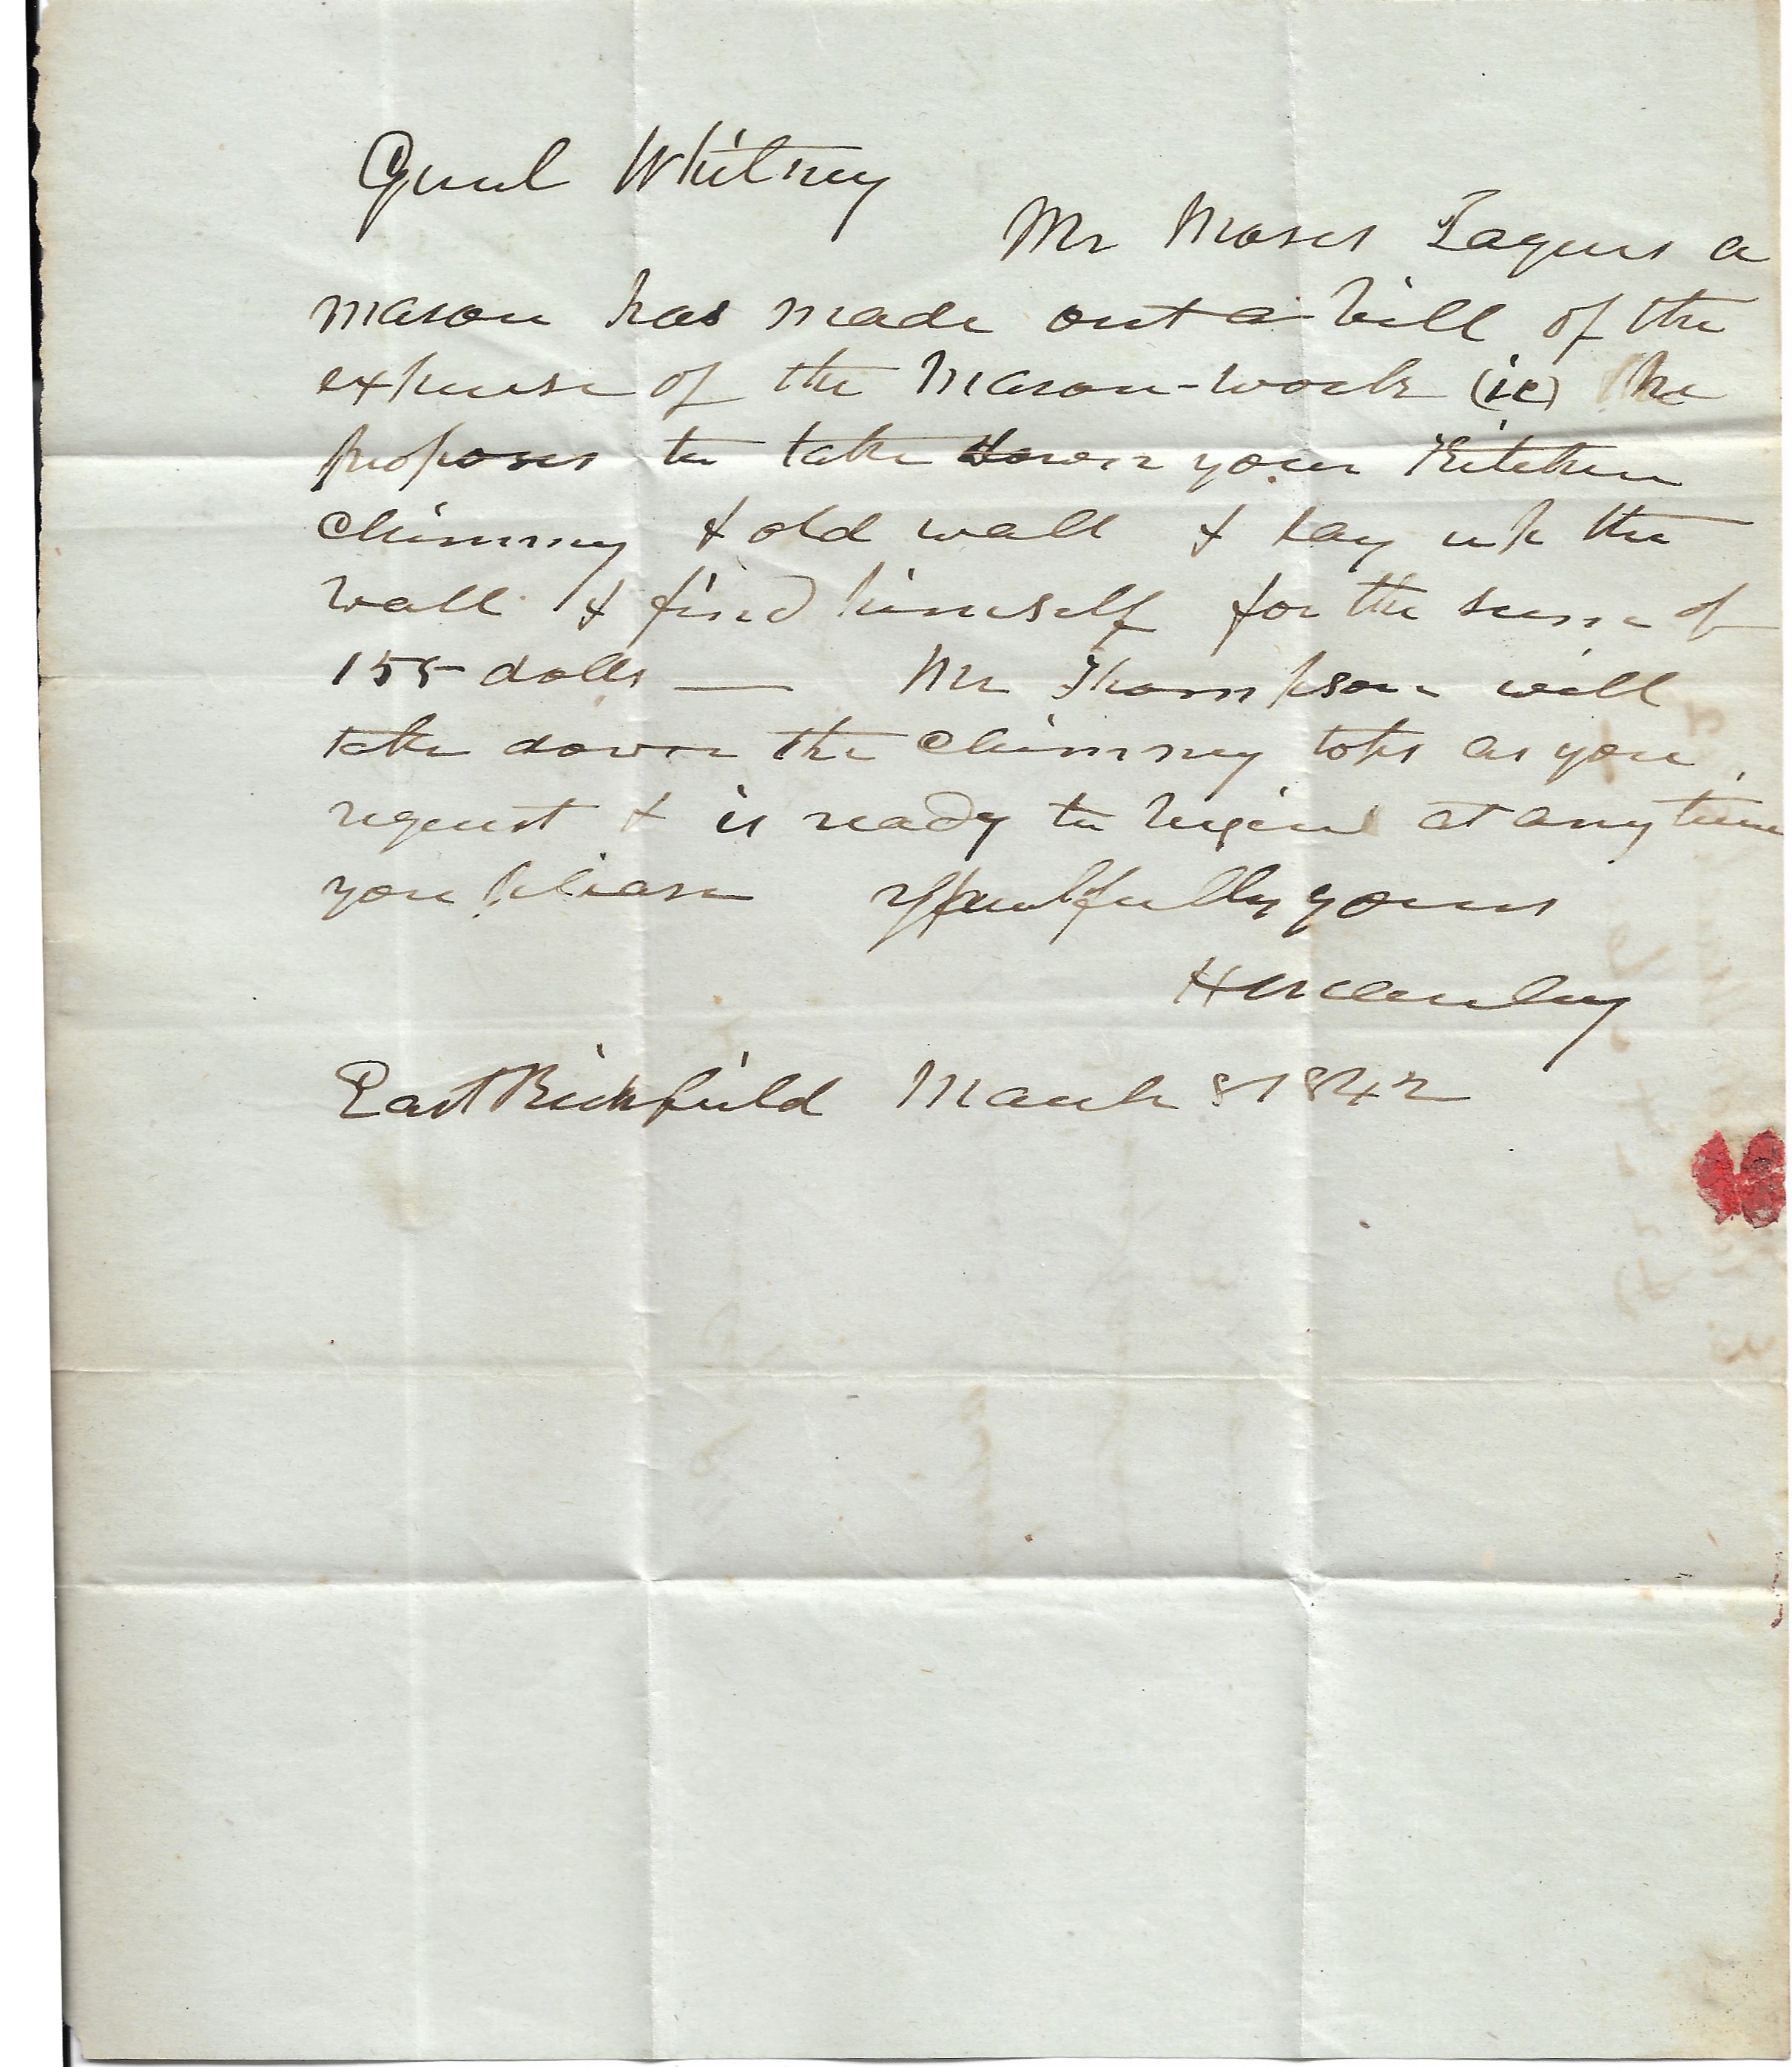 Genl Whitney
Mr Moses Eaqurs a
mason has made out a bill of the
expense of the Mason-work (ie) he
proposes to take down your Kitchen
Chimney & old wall & lay up the
wall & find himself for the sum of
155 dolls — Mr Thompson will
take down the Chimney tops as you
request & is ready to begin at any time
you please respectfully yours
East Richfield March 8 1842